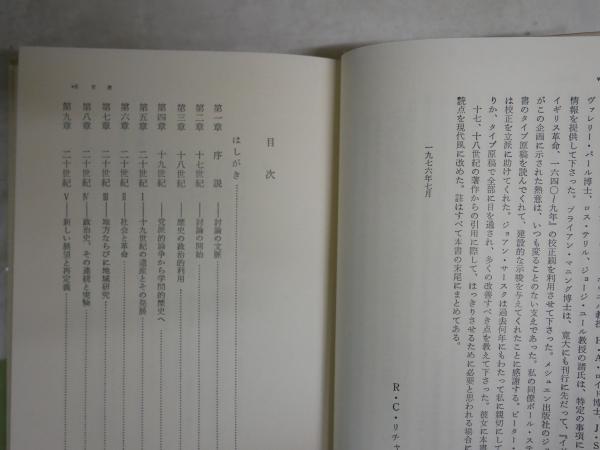 ヴァレリー・パール博士、ロス・テリル、ジョージ・ユール教授の諸氏は、特定の事項に
情報を提供して下さった。ブライアン・マニング博士は、寛大にも刊行に先だって、『イギ
イギリス革命、一六四〇〜九年』の校正刷を利用させて下さった。メシュエン出版社のジ
がこの企画に示された熱意は、いつも変ることのない支えであった。私の同僚ポール・ステ
書のタイプ原稿を読んでくれて、建設的な示唆を与えてくれたことに感謝する。ピーター・
は校正を立派に助けてくれた。ジョアン・サースクは過去何年にもわたって私に親切にして
りか、タイプ原稿で全部に目を通され、多くの改善すべき点を教えて下さった。彼女に本書
十七、十八世紀の著作からの引用に際して、はっきりさせるために必要と思われる場合に
読点を現代風に改めた。註はすべて本書の末尾にまとめてある。
一九七六年七月
R・C・リチャ
目次
はしがき
第一章 序説 ――討論の文脈
第二章 十七世紀 ――討論の開始
第三章 十八世紀 ――歴史の政治的利用
第四章 十九世紀 ――党派的論争から学問的歴史へ
第五章 二十世紀 I ――十九世紀の遺産とその発展
第六章 二十世紀 II ――社会と革命
第七章 二十世紀 III ――地方ならびに地域研究
第八章 二十世紀 IV ――政治史、その連続と実験
第九章 二十世紀 V ――新しい展望と再定義